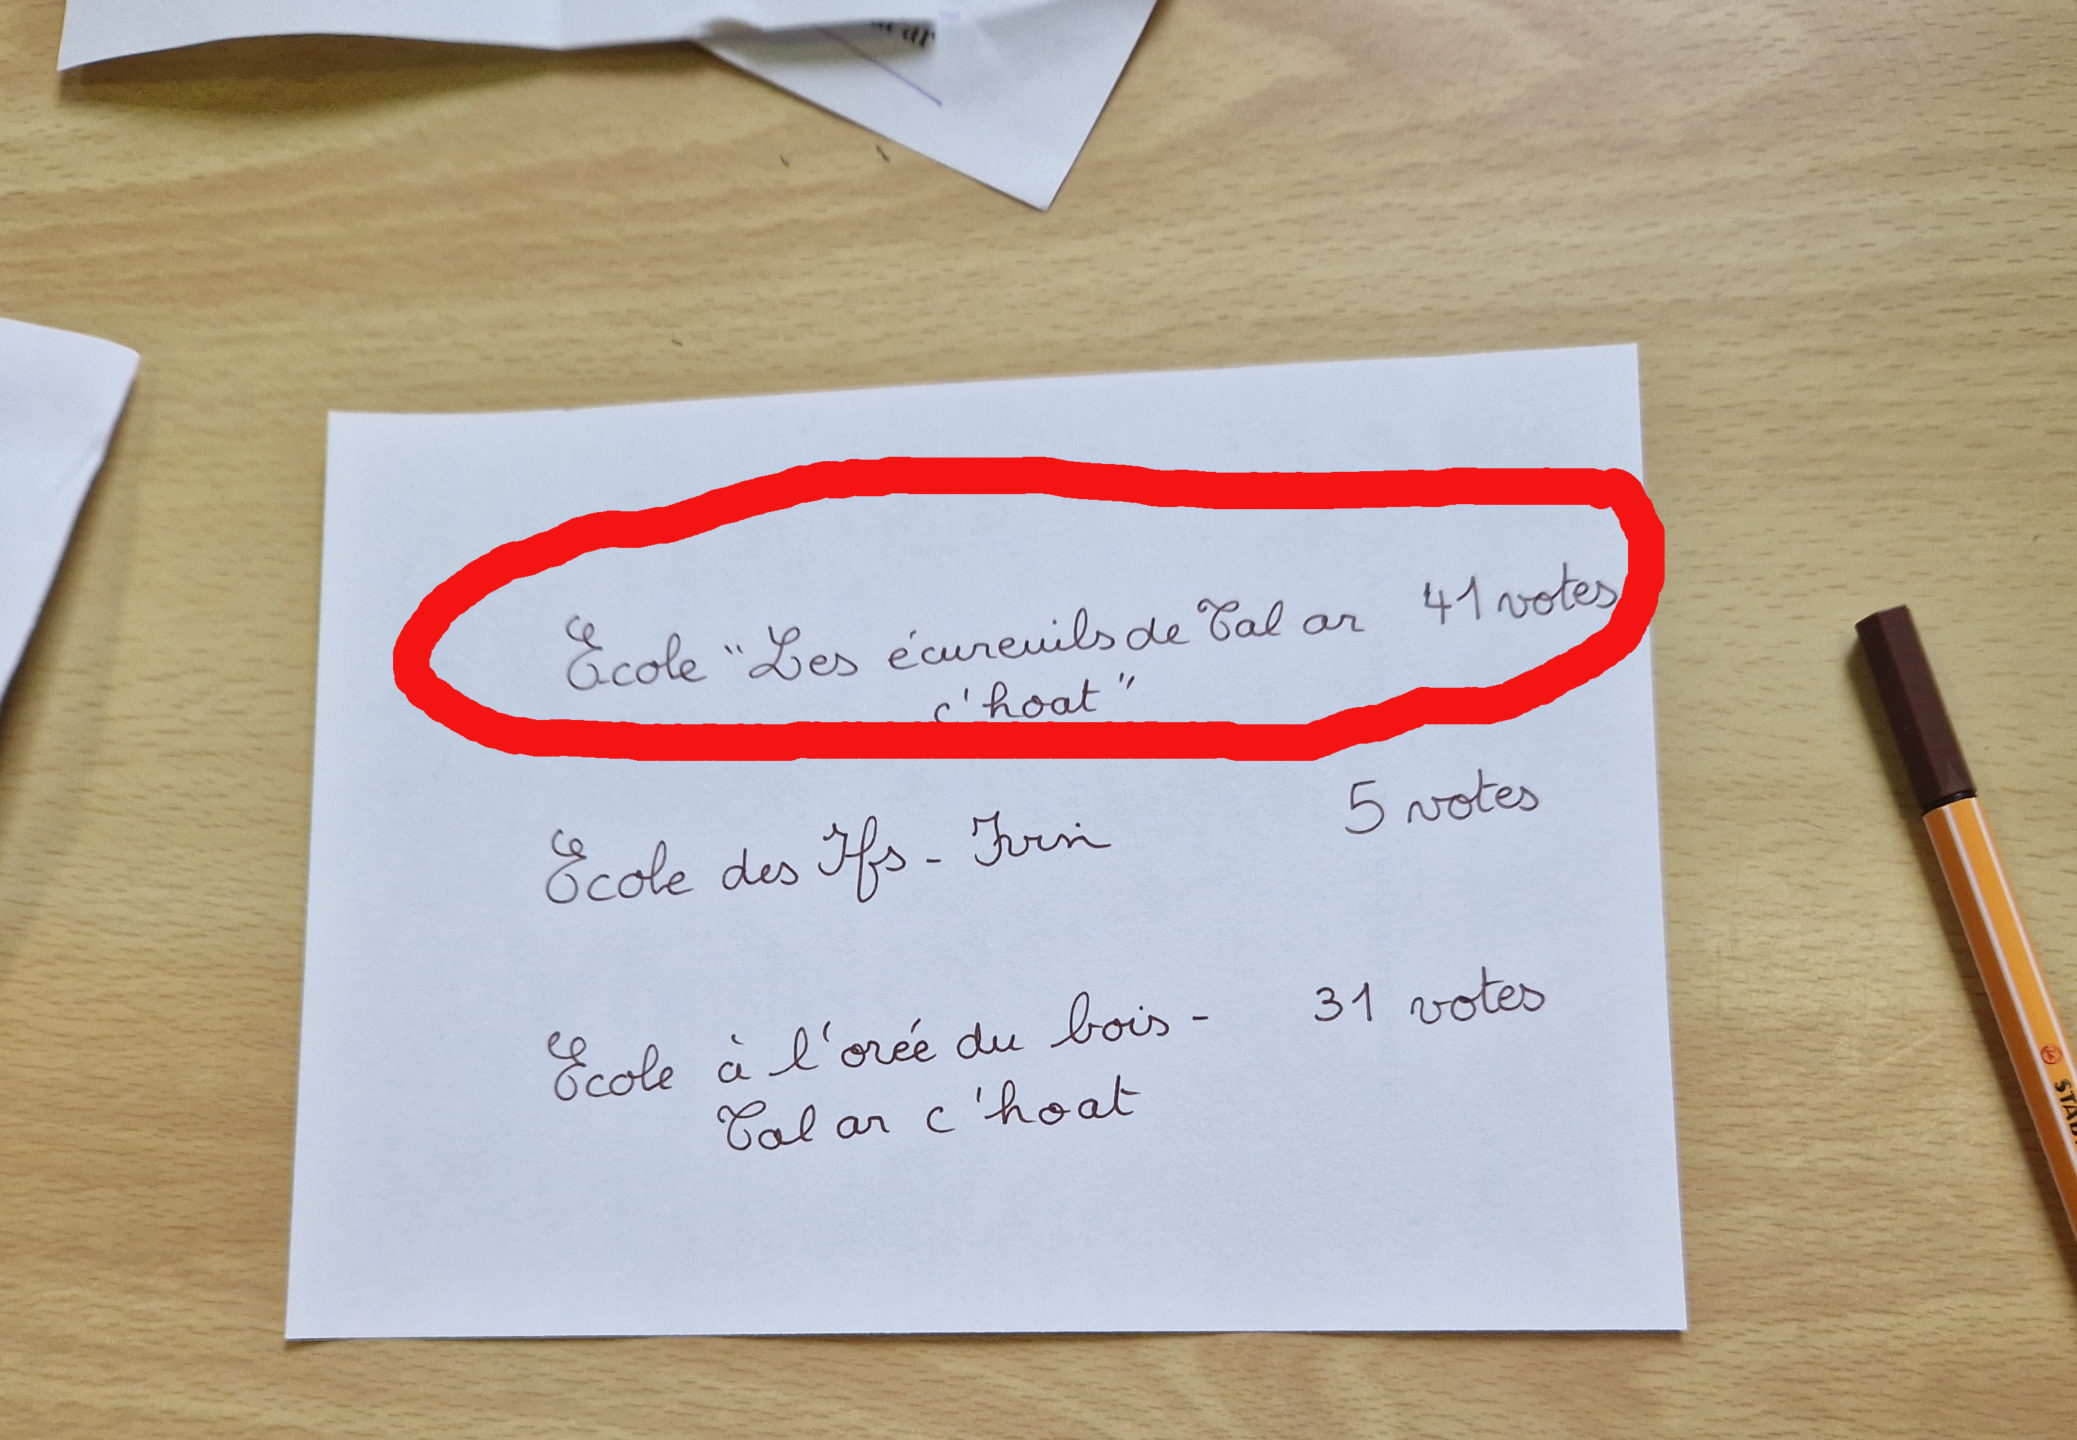 Ecole "Les écureuils de Tal ar 41 votes
c'hoat"
Ecole des Ifs - Ivin 5 votes
Ecole à l'orée du bois - 31 votes
Tal ar c'hoat